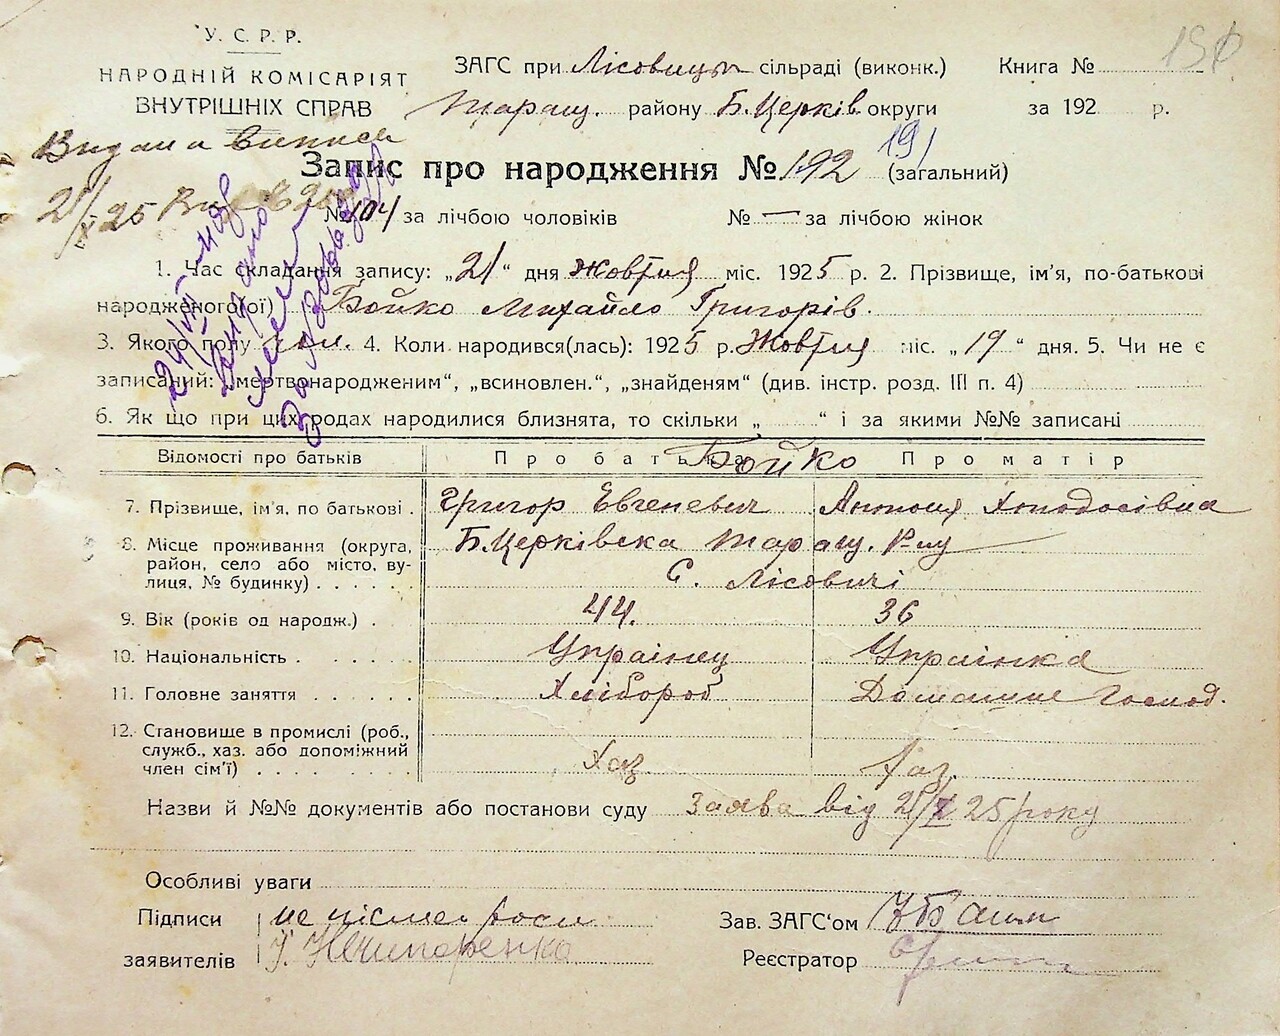 У. С. Р. Р.
НАРОДНІЙ КОМІСАРІЯТ
ВНУТРІШНІХ СПРАВ
ЗАГС при Лісовицьк сільраді (виконк.) Книга №
Таращ. району Б.Церків округи за 192 р.
Видана випись
21/X 25
Запис про народження № 192 191 (загальний)
№ 104 за лічбою чоловіків № — за лічбою жінок
1. Час складання запису: „21“ дня Жовтня міс. 1925 р. 2. Прізвище, ім'я, по-батькові
народженого(ої) Бойко Михайло Григорів.
3. Якого полу чол. 4. Коли народився(лась): 1925 р. Жовтня міс. „19“ дня. 5. Чи не є
записаний: „мертвонародженим“, „всиновлен.“, „знайденям“ (див. інстр. розд. III п. 4)
6. Як що при цих родах народилися близнята, то скільки „ “ і за якими №№ записані
Відомості про батьків Про батька Бойко Про матір
7. Прізвище, ім'я, по батькові . Григор Евгеневич Антонія Хтодосівна
8. Місце проживання (округа, район, село або місто, вулиця, № будинку) . . . . Б.Церківска Таращ. Р-ну
С. Лісовичі
9. Вік (років од народж.) . 44. 36
10. Національність . . . . . Українец Українка
11. Головне заняття . . . . . Хлібороб Домашнє Господ.
12. Становище в промислі (роб., служб., хаз. або допоміжний член сім'ї) . . . . . . . Хаз. Хаз.
Назви й №№ документів або постанови суду Заява від 21/X 25 року
Особливі уваги
Підписи не пісмен
заявителів Нечипоренко
Зав. ЗАГС'ом
Реєстратор